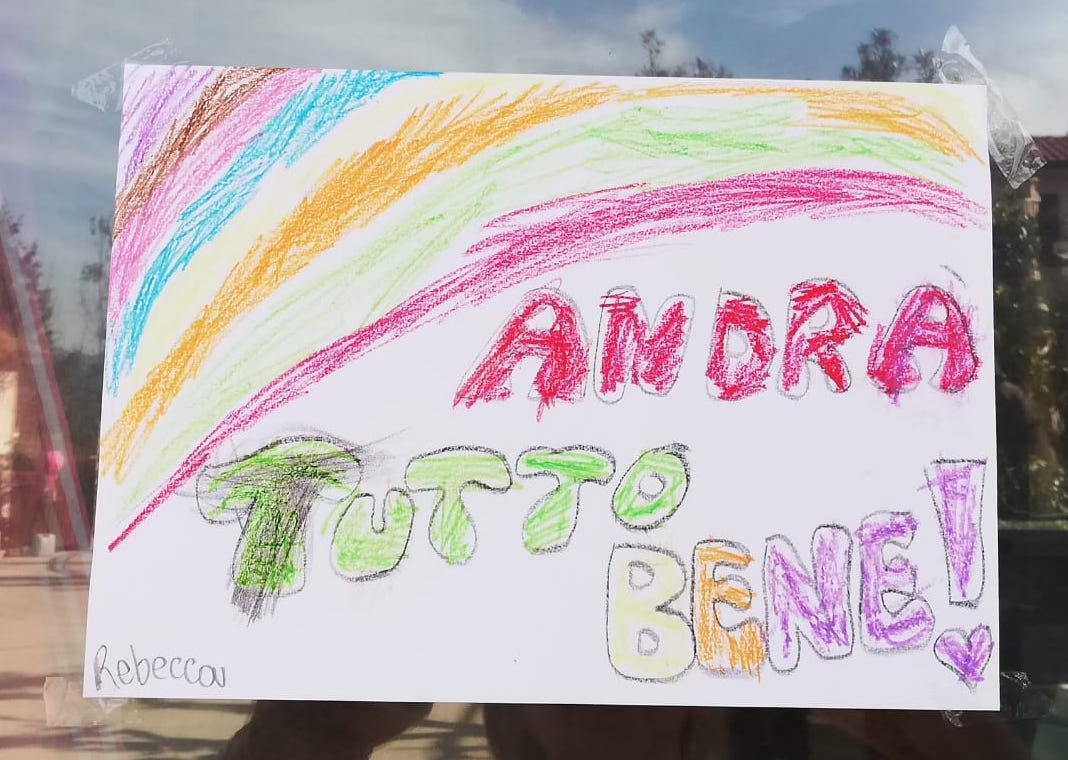 ANDRA
TUTTO
BENE!
Rebecca